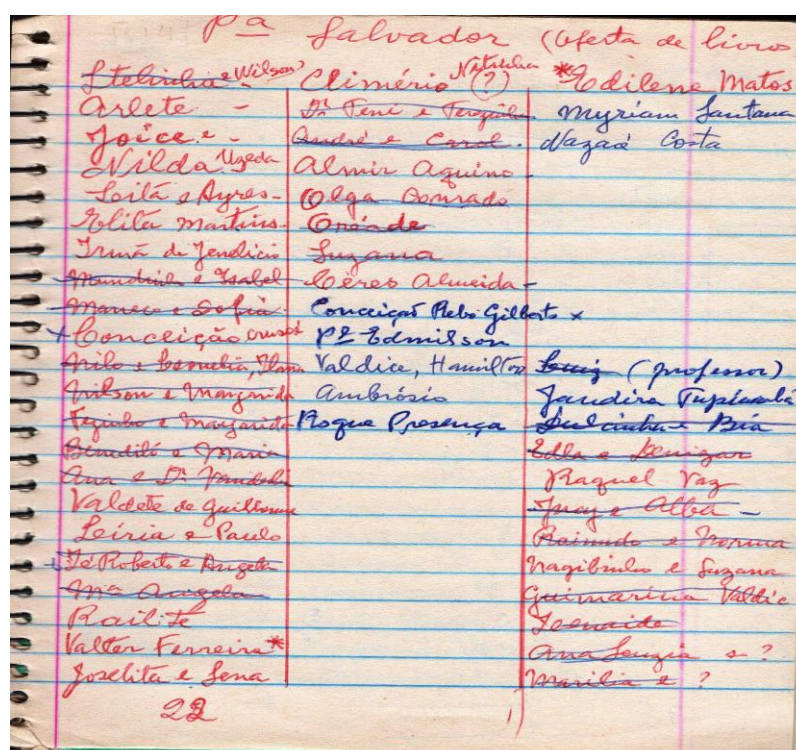 Pª Salvador (Oferta de livros
Stelinha e Wilson
Arlete -
Joice e -
Nilda Uzeda
Leila e Ayres -
Elita Martins -
Irmã de Jendiris
e Isabel
Maneca e Sofia -
+ Conceição
Nilo e Cornelia,
Nilson e Margarida
e Margarida
Benedito e Maria
Ana e Dr
Valdete de Guilherme
Leiria e Paulo
Zé Roberto e Angela
Mª Angela
Railite
Valter Ferreira *
Joselita e Sena
22
Climério (?)
Natalia
Dr e
André e Carol.
Almir Aquino -
Olga
Suzana
Céres Almeida -
Conceição Gilberto x
Pe Edmilson
Valdice, Hamilton
Ambrósio
Roque Presença
* Edilene Matos
Myriam Santana
Nazaré Costa
Luiz (professor)
Jandira Tupinambá
Dulcinha e Bia
Edla e
Raquel Vaz
Juay e Alba -
Raimundo e Norma
Nagibinho e Suzana
Guimarina Valdic
Zenaide
Ana Luzia e ?
Marilia e ?